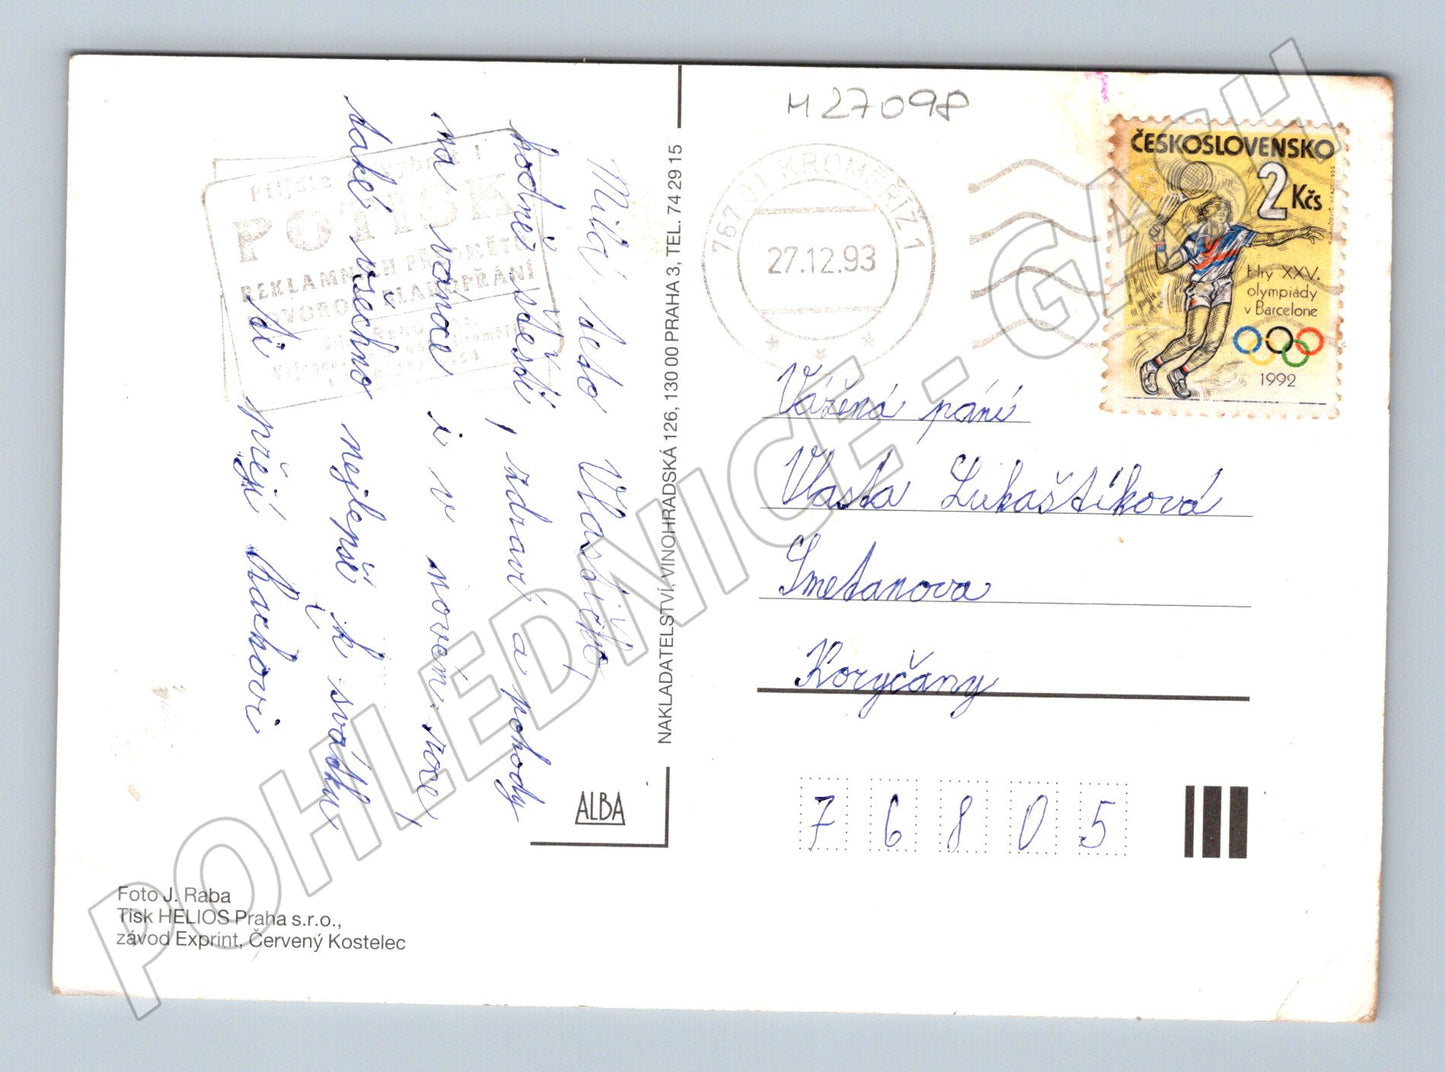 M 27098
ČESKOSLOVENSKO
2 Kčs
Hry XXV.
olympiády
v Barceloně
1992
767 01 KROMĚŘÍŽ 1
27.12.93
Přijďte
POTISK
REKLAMNÍCH PŘEDMĚTŮ
Milá teto Vlastičko,
hodně štěstí, zdraví a pohody
na vánoce i v novém roce,
také všechno nejlepší k svátku
ti přejí Čachovi
Vážená paní
Vlasta Lukaštíková
Smetanova
Koryčany
7 6 8 0 5
NAKLADATELSTVÍ, VINOHRADSKÁ 126, 130 00 PRAHA 3, TEL. 74 29 15
ALBA
Foto J. Raba
Tisk HELIOS Praha s.r.o.,
závod Exprint, Červený Kostelec
POHLEDNICE - GASH